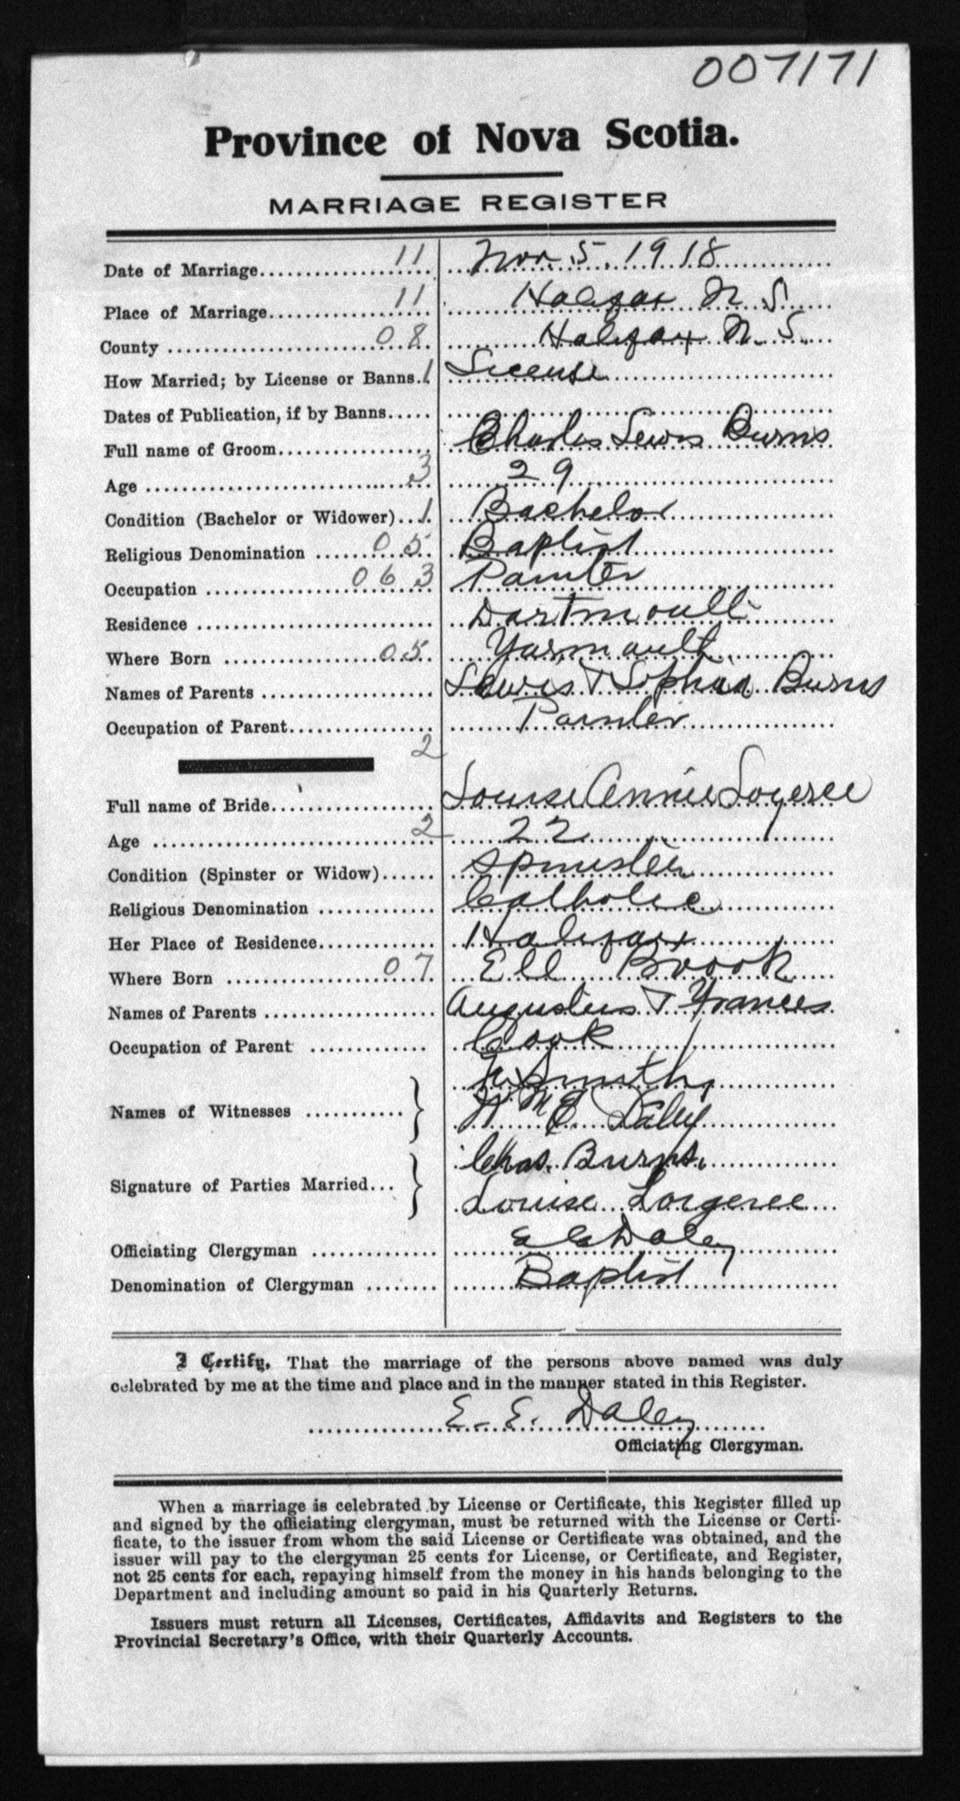 007171
Province of Nova Scotia.
MARRIAGE REGISTER
Date of Marriage 11 Nov. 5. 1918
Place of Marriage 11 Halifax N. S.
County 08 Halifax N. S.
How Married; by License or Banns. 1 License
Dates of Publication, if by Banns
Full name of Groom Charles Lewis Burns
Age 3 29
Condition (Bachelor or Widower) 1 Bachelor
Religious Denomination 05 Baptist
Occupation 063 Painter
Residence Dartmouth
Where Born 05 Yarmouth
Names of Parents Lewis & Sophia Burns
Occupation of Parent Painter
2
Full name of Bride Louise Annie
Age 2 22
Condition (Spinster or Widow) Spinster
Religious Denomination Catholic
Her Place of Residence Halifax
Where Born 07 Ell Brook
Names of Parents Augustus & Frances
Occupation of Parent Cook
Smith
Names of Witnesses Daley
Chas. Burns.
Signature of Parties Married
Louise Lorgeree
Officiating Clergyman E E Daley
Denomination of Clergyman Baptist
I Certify, That the marriage of the persons above named was duly
celebrated by me at the time and place and in the manner stated in this Register.
E. E. Daley
Officiating Clergyman.
When a marriage is celebrated by License or Certificate, this Register filled up
and signed by the officiating clergyman, must be returned with the License or Certi-
ficate, to the issuer from whom the said License or Certificate was obtained, and the
issuer will pay to the clergyman 25 cents for License, or Certificate, and Register,
not 25 cents for each, repaying himself from the money in his hands belonging to the
Department and including amount so paid in his Quarterly Returns.
Issuers must return all Licenses, Certificates, Affidavits and Registers to the
Provincial Secretary's Office, with their Quarterly Accounts.